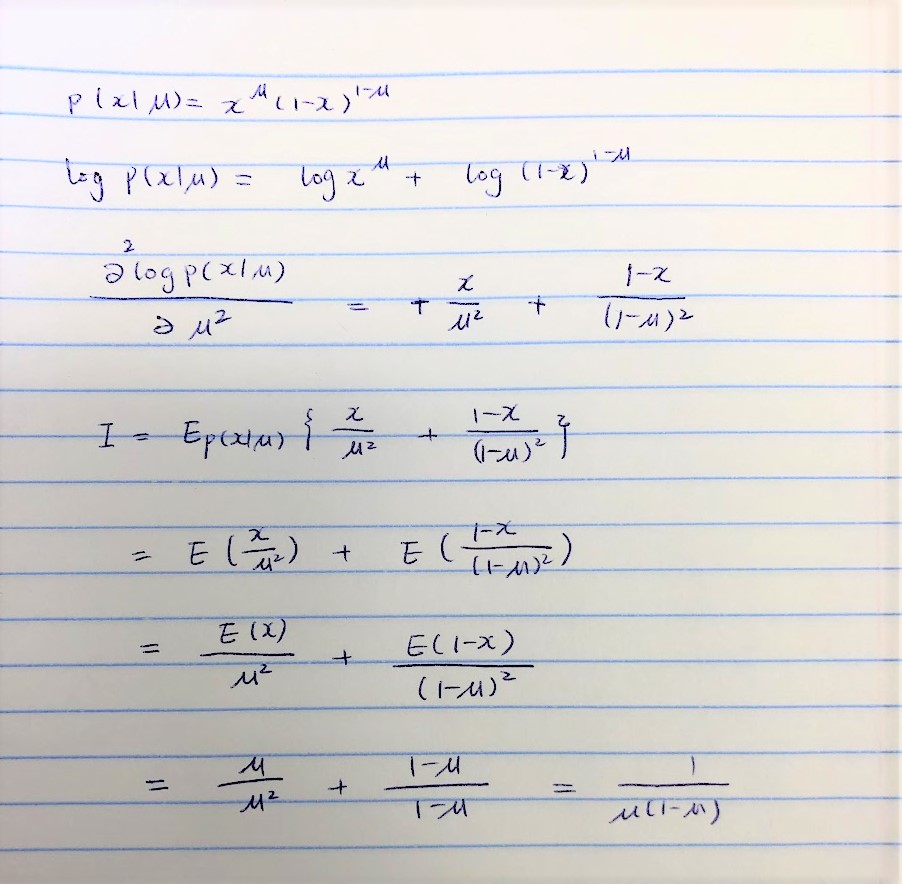 p(x|μ) = x^μ (1-x)^{1-μ}
log p(x|μ) = log x^μ + log (1-x)^{1-μ}
∂² log p(x|μ) / ∂μ² = + x/μ² + (1-x)/(1-μ)²
I = E_{p(x|μ)} { x/μ² + (1-x)/(1-μ)² }
= E(x/μ²) + E((1-x)/(1-μ)²)
= E(x)/μ² + E(1-x)/(1-μ)²
= μ/μ² + (1-μ)/(1-μ) = 1/(μ(1-μ))